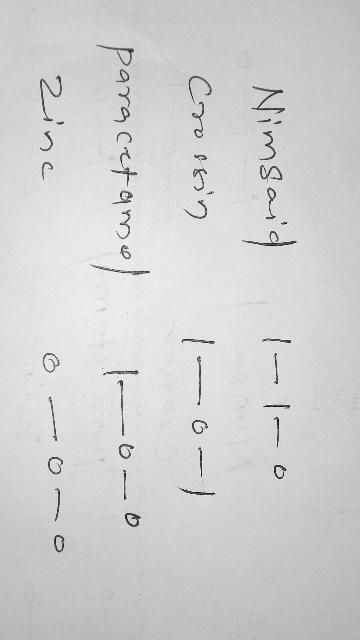 Nimgaid 1-1-0
Crossin 1-0-1
Paracetamol 1-0-0
Zinc 0-0-0